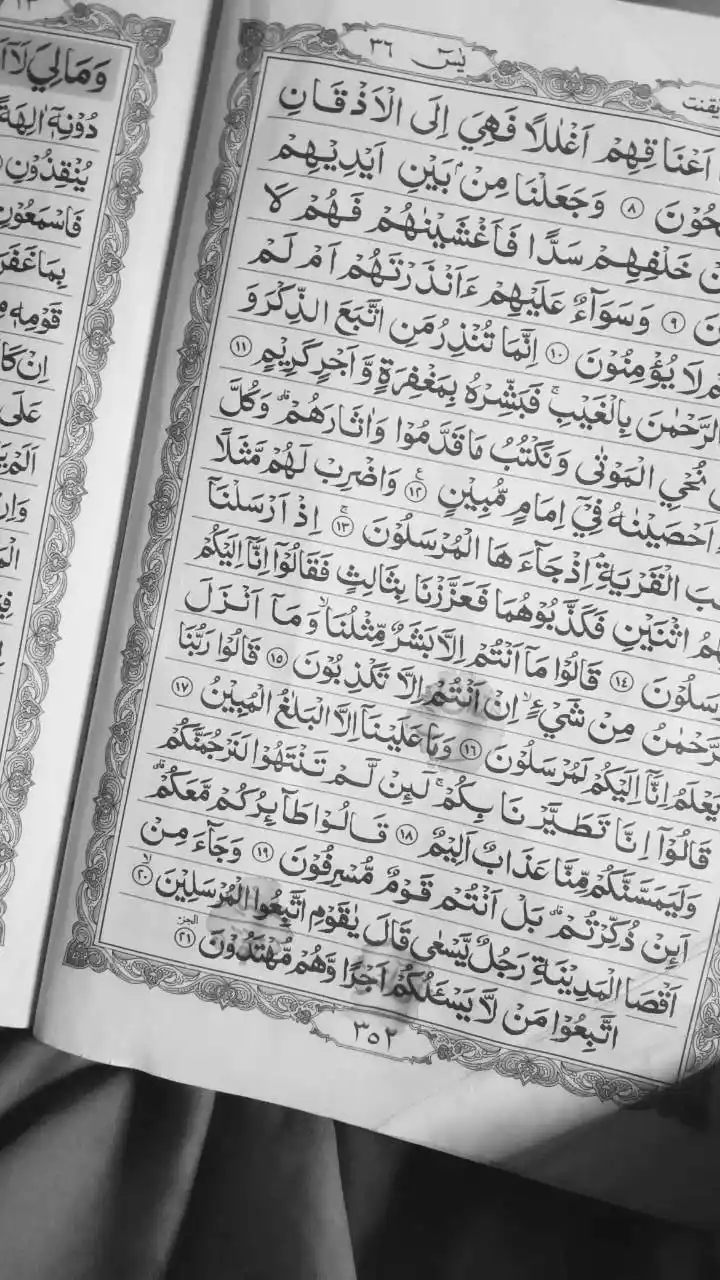 يٰسٓ ٣٦
اَعْنَاقِهِمْ اَغْلٰلًا فَهِيَ اِلَى الْاَذْقَانِ
حُوْنَ ٨ وَجَعَلْنَا مِنْۢ بَيْنِ اَيْدِيْهِمْ
خَلْفِهِمْ سَدًّا فَاَغْشَيْنٰهُمْ فَهُمْ لَا
نَ ٩ وَسَوَآءٌ عَلَيْهِمْ ءَاَنْذَرْتَهُمْ اَمْ لَمْ
هُمْ لَا يُؤْمِنُوْنَ ١٠ اِنَّمَا تُنْذِرُ مَنِ اتَّبَعَ الذِّكْرَ وَ
الرَّحْمٰنَ بِالْغَيْبِۚ فَبَشِّرْهُ بِمَغْفِرَةٍ وَّاَجْرٍ كَرِيْمٍ ١١
نُحْيِ الْمَوْتٰى وَنَكْتُبُ مَا قَدَّمُوْا وَاٰثَارَهُمْۗ وَكُلَّ
اَحْصَيْنٰهُ فِيْٓ اِمَامٍ مُّبِيْنٍ ١٢ وَاضْرِبْ لَهُمْ مَّثَلًا
بَ الْقَرْيَةِۘ اِذْ جَآءَهَا الْمُرْسَلُوْنَۚ ١٣ اِذْ اَرْسَلْنَآ
هِمُ اثْنَيْنِ فَكَذَّبُوْهُمَا فَعَزَّزْنَا بِثَالِثٍ فَقَالُوْٓا اِنَّآ اِلَيْكُمْ
سَلُوْنَ ١٤ قَالُوْا مَآ اَنْتُمْ اِلَّا بَشَرٌ مِّثْلُنَاۙ وَمَآ اَنْزَلَ
الرَّحْمٰنُ مِنْ شَيْءٍۙ اِنْ اَنْتُمْ اِلَّا تَكْذِبُوْنَ ١٥ قَالُوْا رَبُّنَا
يَعْلَمُ اِنَّآ اِلَيْكُمْ لَمُرْسَلُوْنَ ١٦ وَمَا عَلَيْنَآ اِلَّا الْبَلٰغُ الْمُبِيْنُ ١٧
قَالُوْٓا اِنَّا تَطَيَّرْنَا بِكُمْۚ لَىِٕنْ لَّمْ تَنْتَهُوْا لَنَرْجُمَنَّكُمْ
وَلَيَمَسَّنَّكُمْ مِّنَّا عَذَابٌ اَلِيْمٌ ١٨ قَالُوْا طَاۤىِٕرُكُمْ مَّعَكُمْۗ
اَىِٕنْ ذُكِّرْتُمْۗ بَلْ اَنْتُمْ قَوْمٌ مُّسْرِفُوْنَ ١٩ وَجَآءَ مِنْ
اَقْصَا الْمَدِيْنَةِ رَجُلٌ يَّسْعٰى قَالَ يٰقَوْمِ اتَّبِعُوا الْمُرْسَلِيْنَۙ ٢٠
اتَّبِعُوْا مَنْ لَّا يَسْـَٔلُكُمْ اَجْرًا وَّهُمْ مُّهْتَدُوْنَ ٢١
٣٥٢
وَمَالِيَ لَآ
دُوْنِهٖٓ اٰلِهَةً
يُنْقِذُوْنِ
فَاسْمَعُوْنِ
بِمَا غَفَرَ
قَوْمِهٖ
اِنْ كَا
عَلَى
اَلَمْ